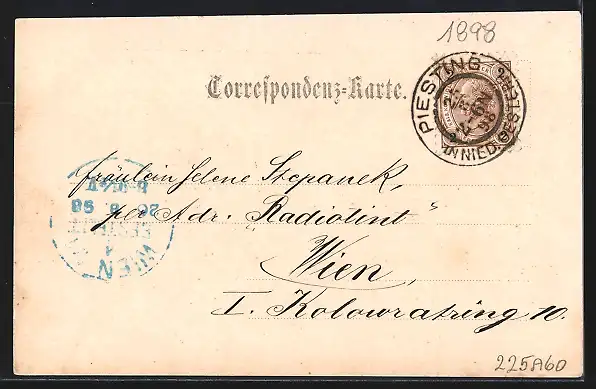 1898
Correspondenz-Karte.
PIESTING
IN NIED. OESTERR.
98
Fräulein Helene Stepanek,
per Adr. „Radiotint"
Wien,
I. Kolowratring 10.
WIEN
98
225A60